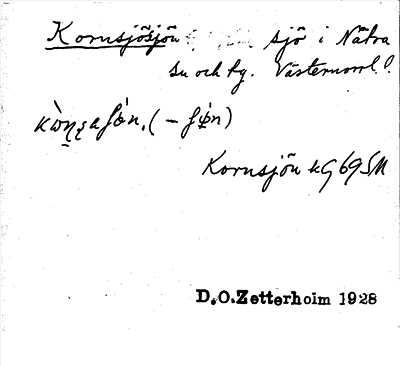 Kornsjösjön sjö i Nätra
sn och tg. Västernorrl. l.
Kornsjön kG 69 SM
D.O.Zetterholm 1928